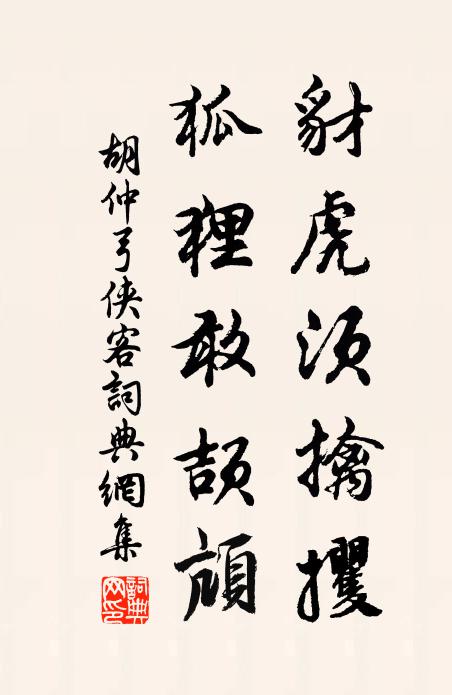 豺虎須擒攫
狐狸敢頡頏
胡仲弓俠客詞典網集
詞典网印